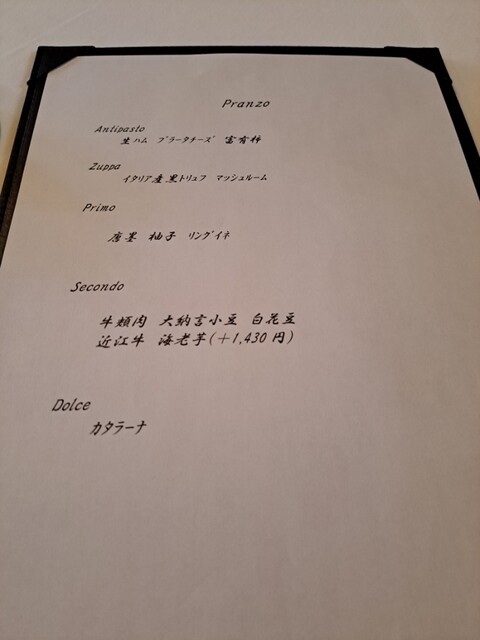 Pranzo
Antipasto
生ハム ブラータチーズ 富有柿
Zuppa
イタリア産黒トリュフ マッシュルーム
Primo
唐墨 柚子 リングイネ
Secondo
牛頬肉 大納言小豆 白花豆
近江牛 海老芋(+1,430円)
Dolce
カタラーナ